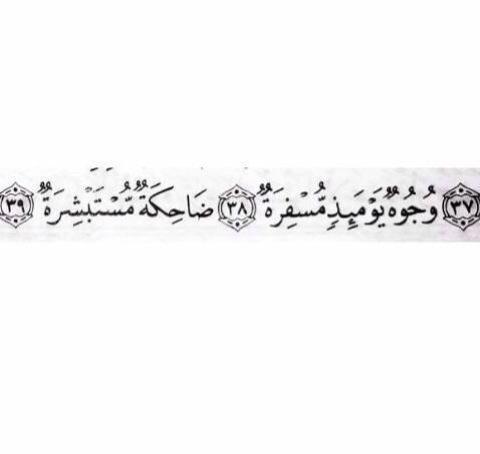 ٣٧ وُجُوهٌ يَوْمَئِذٍ مُّسْفِرَةٌ ٣٨ ضَاحِكَةٌ مُّسْتَبْشِرَةٌ ٣٩